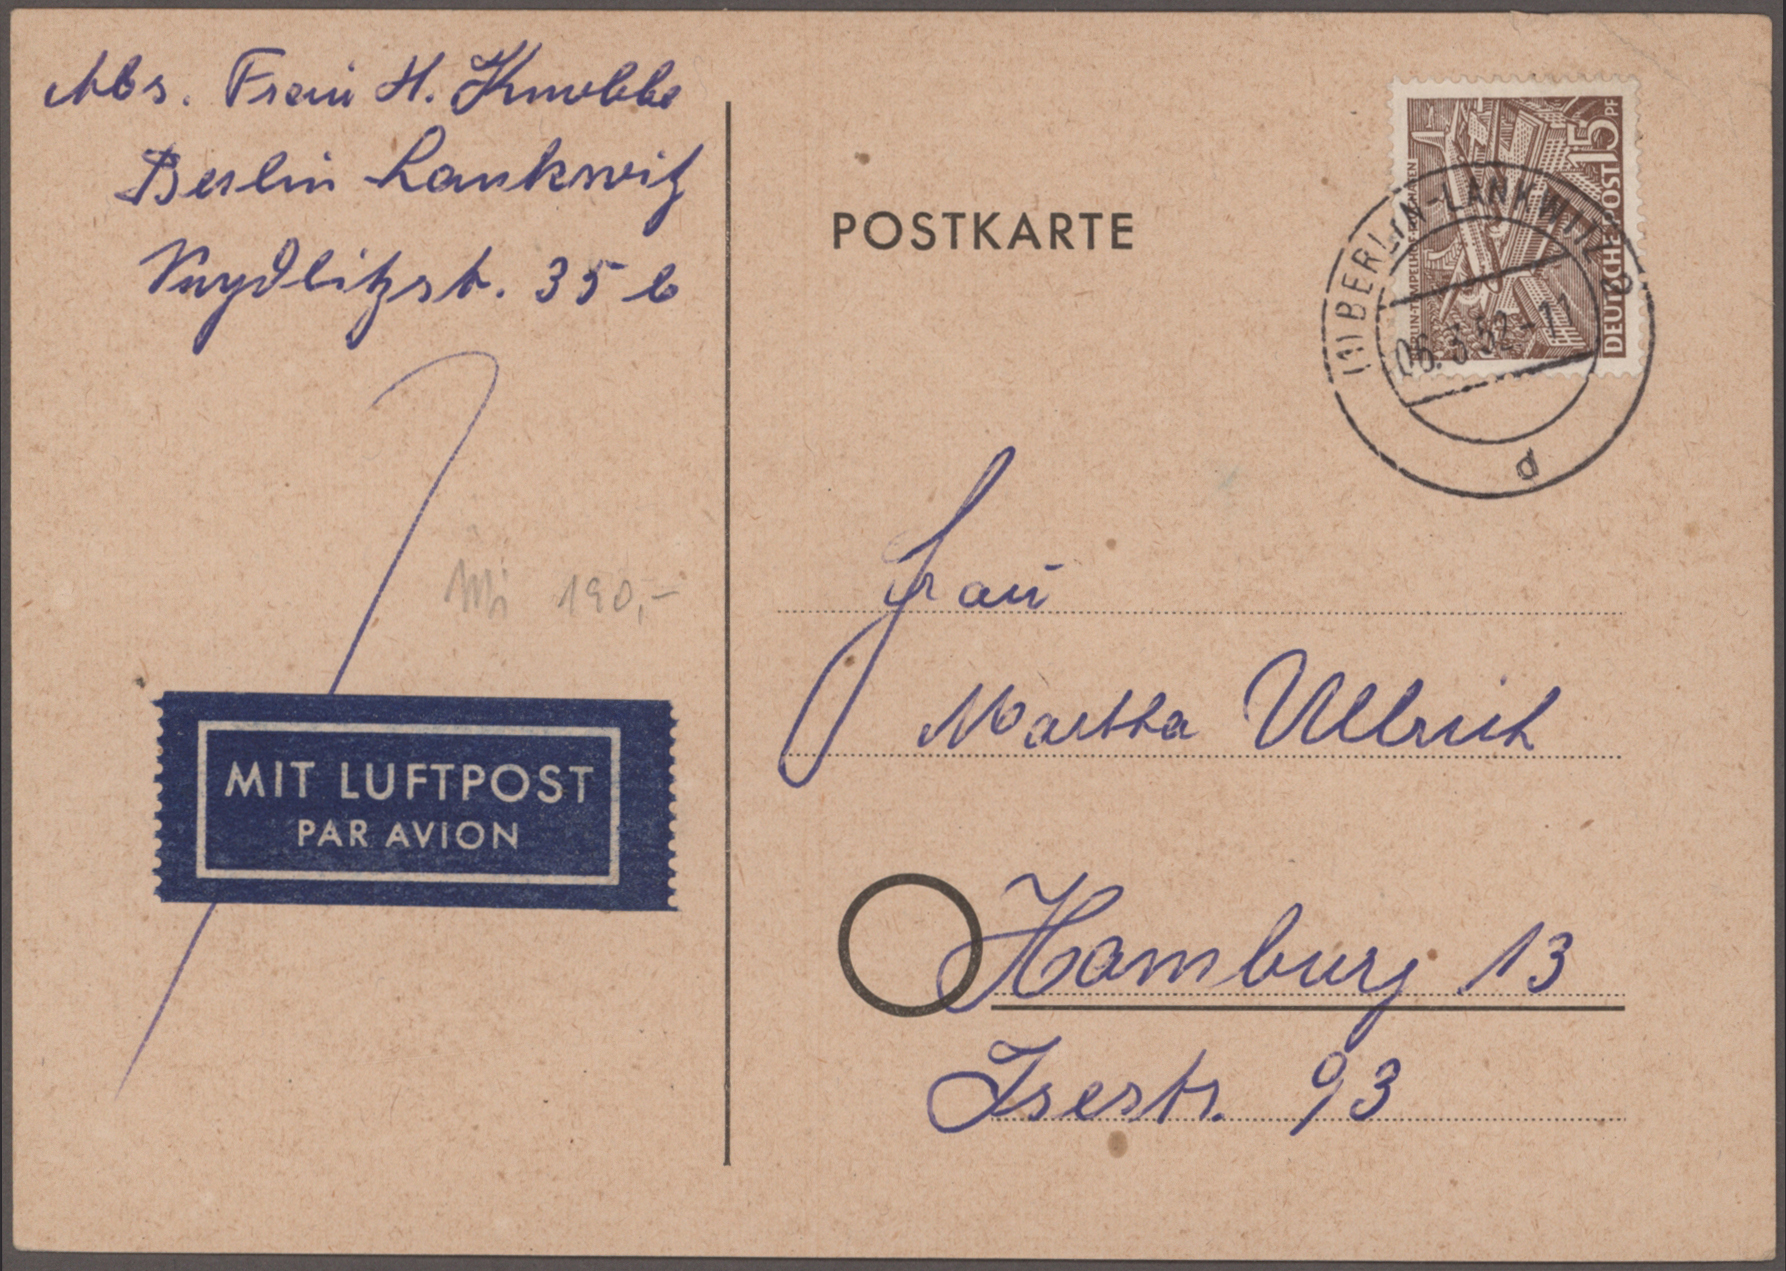 Abs. Frau H. Knobbe
Berlin Lankwitz
Seydlitzstr. 35 b
POSTKARTE
15 PF
DEUTSCHE POST
BERLIN-TEMPELHOF
(1) BERLIN-LANKWITZ
06.3.52-11
d
Mi 190,-
MIT LUFTPOST
PAR AVION
Frau
Martha Ullrich
Hamburg 13
Isestr. 93